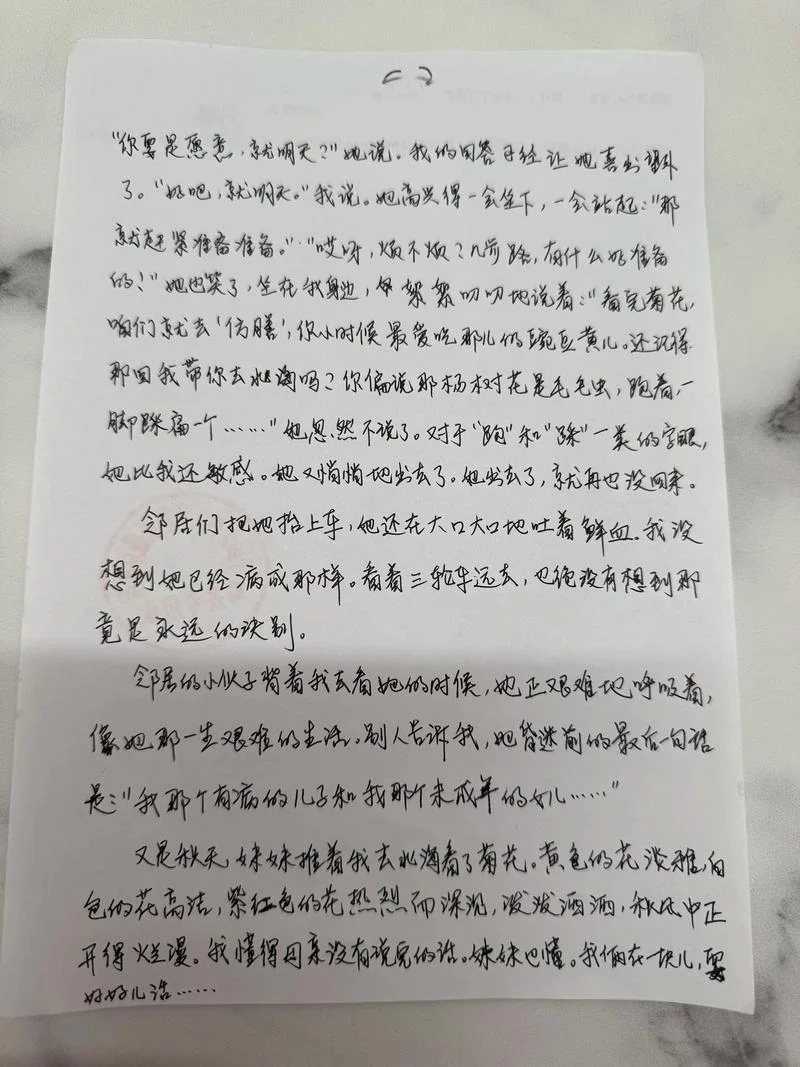 “你要是愿意，就明天？”她说。我的回答已经让她喜出望外
了。“好吧，就明天。”我说。她高兴得一会坐下，一会站起：“那
就赶紧准备准备。”“哎呀，烦不烦？几步路，有什么好准备
的？”她也笑了，坐在我身边，絮絮叨叨地说着：“看完菊花，
咱们就去‘仿膳’，你小时候最爱吃那儿的豌豆黄儿。还记得
那回我带你去北海吗？你偏说那杨树花是毛毛虫，跑着，一
脚踩扁一个……”她忽然不说了。对于“跑”和“踩”一类的字眼，
她比我还敏感。她又悄悄地出去了。她出去了，就再也没回来。
邻居们把她抬上车，她还在大口大口地吐着鲜血。我没
想到她已经病成那样。看着三轮车远去，也绝没有想到那
竟是永远的诀别。
邻居的小伙子背着我去看她的时候，她正艰难地呼吸着，
像她那一生艰难的生活。别人告诉我，她昏迷前的最后一句话
是：“我那个有病的儿子和我那个未成年的女儿……”
又是秋天，妹妹推着我去北海看了菊花。黄色的花淡雅，白
色的花高洁，紫红色的花热烈而深沉，泼泼洒洒，秋风中正
开得烂漫。我懂得母亲没有说完的话。妹妹也懂。我俩在一块儿，要
好好儿活……